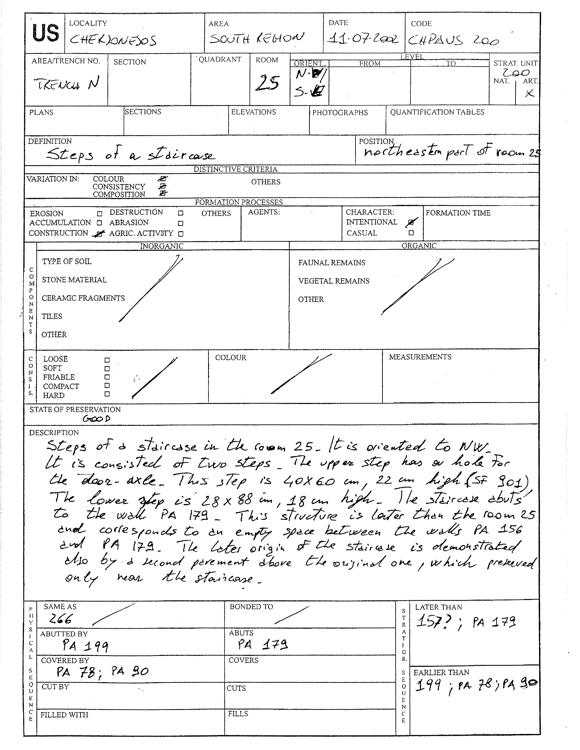 US
LOCALITY
CHERSONESOS
AREA
SOUTH REGION
DATE
11.07.2002
CODE
CHPAUS 200
AREA/TRENCH NO.
TRENCH N
SECTION
QUADRANT
ROOM
25
ORIENT.
N-W
S-E
LEVEL
FROM
TO
STRAT. UNIT
200
NAT.
ART.
X
PLANS
SECTIONS
ELEVATIONS
PHOTOGRAPHS
QUANTIFICATION TABLES
DEFINITION
Steps of a staircase
POSITION
northeastern part of room 25
DISTINCTIVE CRITERIA
VARIATION IN:
COLOUR
CONSISTENCY
COMPOSITION
OTHERS
FORMATION PROCESSES
EROSION
DESTRUCTION
OTHERS
AGENTS:
CHARACTER:
FORMATION TIME
ACCUMULATION
ABRASION
INTENTIONAL
CONSTRUCTION
AGRIC. ACTIVITY
CASUAL
COMPONENTS
INORGANIC
TYPE OF SOIL
STONE MATERIAL
CERAMIC FRAGMENTS
TILES
OTHER
ORGANIC
FAUNAL REMAINS
VEGETAL REMAINS
OTHER
CONSIS.
LOOSE
SOFT
FRIABLE
COMPACT
HARD
COLOUR
MEASUREMENTS
STATE OF PRESERVATION
GOOD
DESCRIPTION
Steps of a staircase in the room 25. It is oriented to NW.
It is consisted of two steps. The upper step has a hole for
the door-axle. This step is 40x60 cm, 22 cm high (SF 901)
The lower step is 28x88 cm, 18 cm high. The staircase abuts
to the wall PA 179. This structure is later than the room 25
and corresponds to an empty space between the walls PA 156
and PA 179. The later origin of the staircase is demonstrated
also by a second pavement above the original one, which preserved
only near the staircase.
PHYSICAL SEQUENCE
SAME AS
266
BONDED TO
ABUTTED BY
PA 199
ABUTS
PA 179
COVERED BY
PA 78; PA 90
COVERS
CUT BY
CUTS
FILLED WITH
FILLS
STRATIGR. SEQUENCE
LATER THAN
157?; PA 179
EARLIER THAN
199; PA 78; PA 90